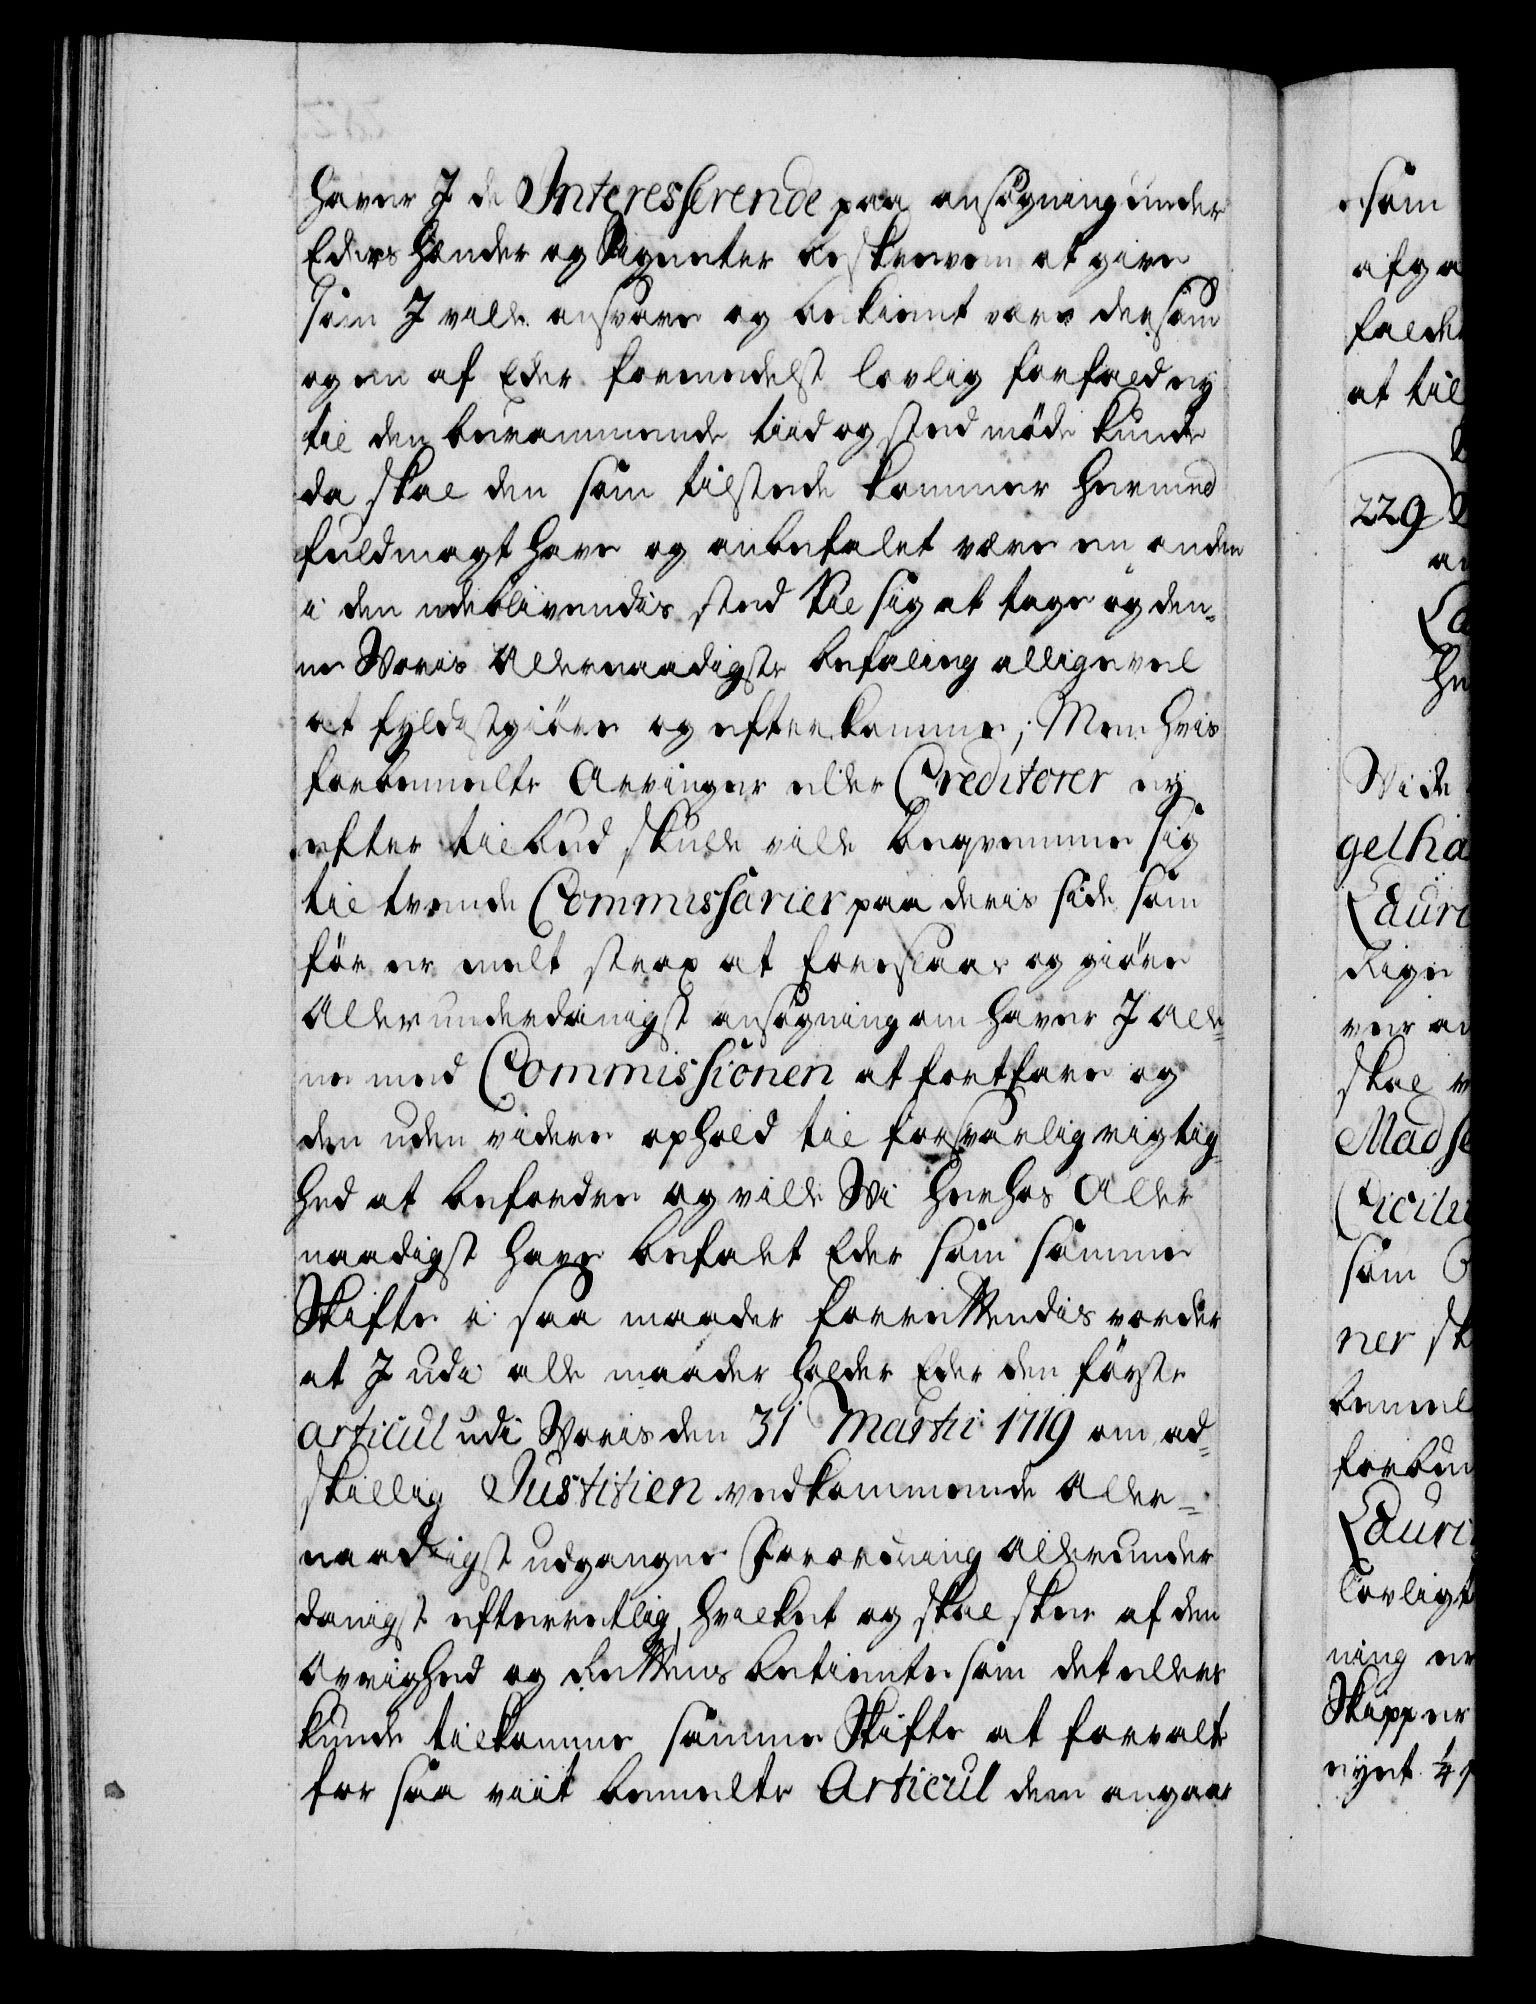 haver I de Interesserende paa ansøgning under
Eders Hænder og Signeter beskreven at give
som I ville ansvare og bekient være dersom
og en af Eder formedelst lovlig forfald ej
til den berammende tiid og sted møde kunde
da skal den som tilstede kommer hermed
fuldmagt have og anbefalet være en anden
i den udeblivendis sted til sig at tage og den¬
ne Woris Allernaadigste befaling alligevel
at fyldistgiøre og efterkomme; Men hvis
forbemelte Arvinger eller Creditorer ej
efter tilbud skulle ville beqvemme sig
til tvende Commissarier paa deris side som
før er melt strax at foreslaae og giøre
Allerunderdanigst ansøgning om haver I Alle¬
ne med Commissionen at fortfare og
den uden videre ophold til forsvarlig rigtig¬
hed at befordre og ville Wi herhos Aller
naadigst have befalet Eder som samme
Skifte i saa maader forrettendis vorder
at I udi alle maader holder Eder den første
articul udi Woris den 31 Martii 1719 om ad¬
skillig Justitien vedkommende Aller¬
naadigst udgangne Forordning allerunder
danigst efterretlig, hvilket og skal skee af den
Øvrighed og Rettens betiente som det ellers
kunde tilkomme samme Skifte at forvalte
for saa viit bemelte Articul dem angaar
som
afga
falde
at til
229
Wi de
gelha
Lauri
dige
skal
Madse
som
ner sk
bemel
forbem
Lauri
lovligt
ning er
Skipper